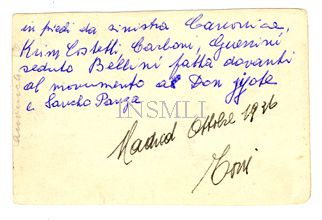 in piedi da sinistra Canonica,
Krim, Costetti, Carboni, Guernini
seduto Bellini fatta davanti
al monumento al Don
e Sancho Panza
INSMLI
Madrid Ottobre 1936